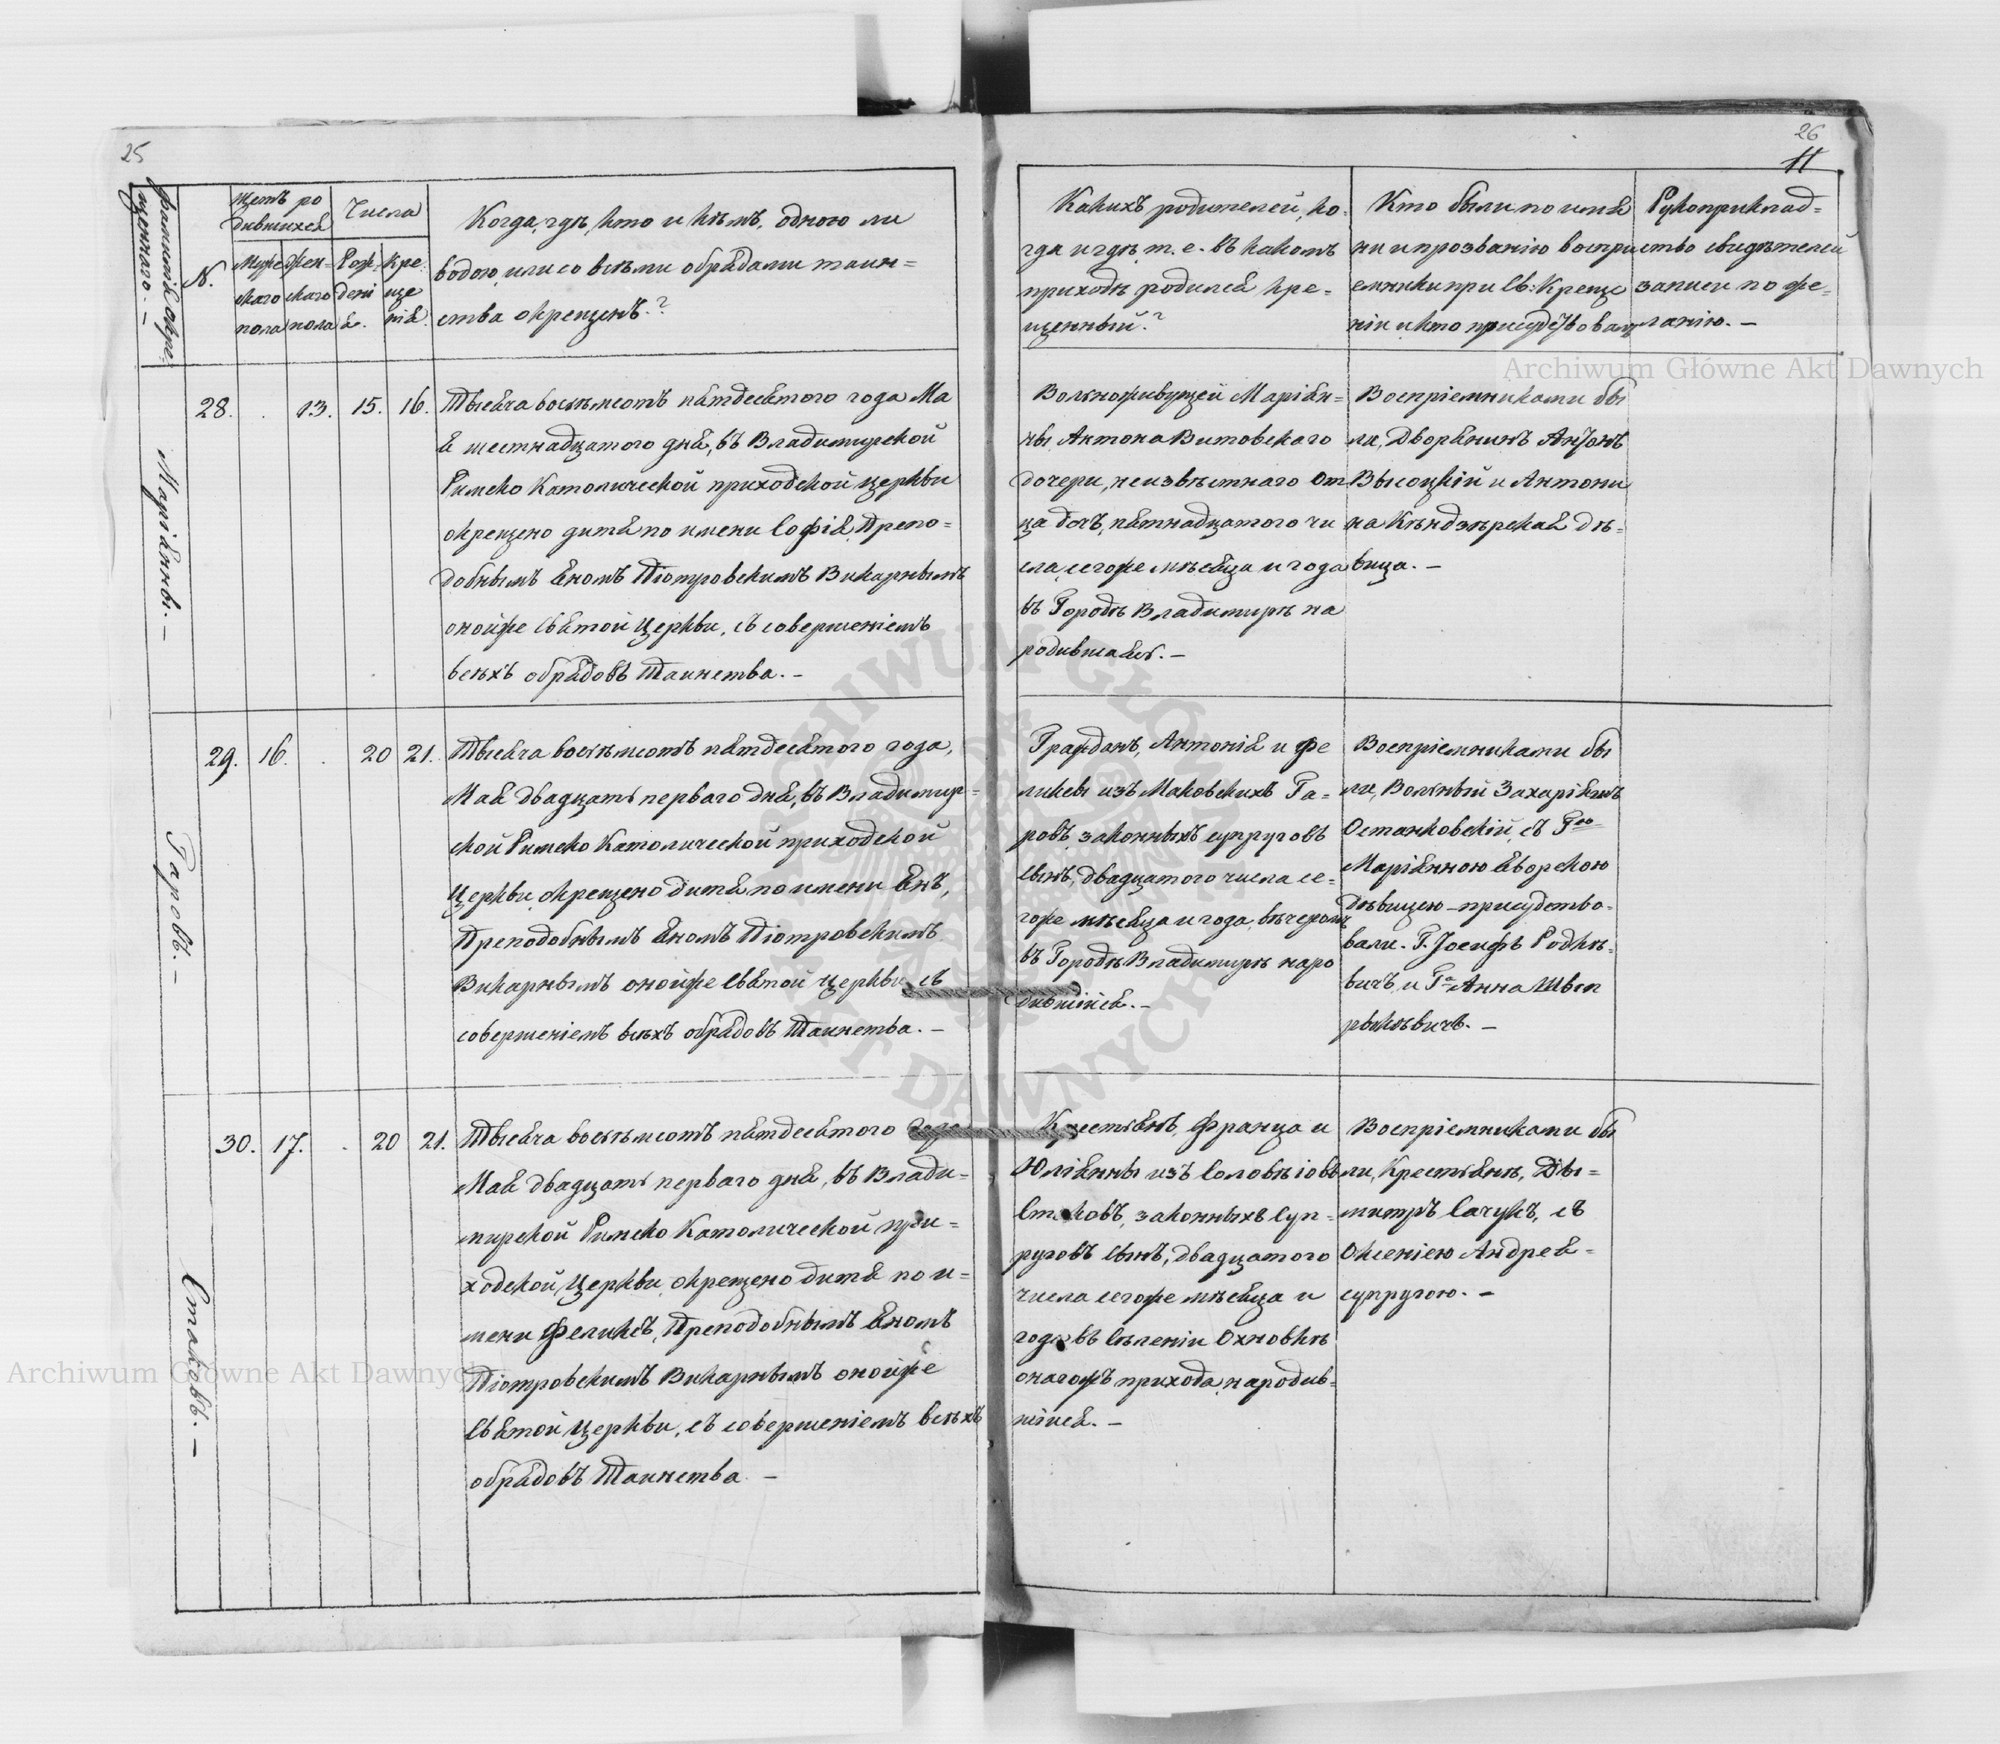 25
Фамилія окре
щеннаго. —
N.
Щетъ ро
дившихся
Муже
скаго
пола
Жен-
скаго
пола
Числа
Рож
дені
я.
Кре
ще
нія.
Когда, гдѣ, кто и кѣмъ, одною ли
водою, или со всѣми обрядами таин=
ства окрещенъ.?
Маріянны. —
28. . 13. 15. 16.
Тысяча восьмсотъ пятдесятого года Ма
я шестнадцатого дня, въ Владимирской
Римско Католической приходской церкви
окрещено дитя по имени Софія, Препо=
добнымъ Яномъ Піотровскимъ Викарнымъ
онойже Святой Церкви, съ совершеніемъ
всѣхъ обрядовъ Таинства. —
Гаровъ. —
29. 16. . 20 21.
Тысяча восьмсотъ пятдесятого года,
Мая двадцать перваго дня, въ Владимир=
ской Римско Католической приходской
Церкви, окрещено дитя по имени Янъ,
Преподобнымъ Яномъ Піотровскимъ
Викарнымъ онойже Святой церкви съ
совершеніемъ всѣхъ обрядовъ Таинства. —
Стаковъ. —
30. 17. . 20 21.
Тысяча восьмсотъ пятдесятого года
Мая двадцать перваго дня, въ Влади=
мирской Римско Католической при=
ходской, Церкви, окрещено дитя по и=
мени Феликсъ, Преподобнымъ Яномъ
Піотровскимъ Викарнымъ онойже
Святой Церкви, съ совершеніемъ всѣхъ
обрядовъ Таинства —
26
11
Какихъ родителей, ко-
гда и гдѣ, т. е. въ какомъ
приходѣ родился кре-
щенный?
Кто были по имя
ни и прозванію воспри
емники при Св: Креще
ніи и кто присудствовалъ
Рукоприклад=
ство свидѣтелей
записи по же=
ланію. —
Вольноживущей Маріян=
ны Антона Витовскаго
дочери, неизвѣстнаго от
ца дочь, пятнадцатого чи
сла, сегоже мѣсяца и года
въ Городѣ Владимирѣ на
родившаяся. —
Воспріемниками бы
ли, Дворянинъ Антонъ
Высоцкій и Антони
на Кѣндзѣрская дѣ=
вица. —
Гражданъ, Антонія и Фе
ликсы изъ Маковскихъ Га=
ровъ, законныхъ супруговъ
сынъ, двадцатого числа се=
гоже мѣсяца и года, вечеромъ
въ Городѣ Владимирѣ наро
дившійся. —
Воспріемниками бы
ли, Вольный Захаріяшъ
Останковскій, съ Гею
Маріянною Яворскою
Дѣвицею — присудство-
вали. Г. Іосифъ Родкѣ-
вичъ, и Га Анна Швы
рыкѣвичъ. —
Крестьянъ, Франца и
Юліянны изъ Соловѣіовъ
Стаковъ, законныхъ Суп=
руговъ сынъ, двадцатого
числа сегоже мѣсяца и
года въ Сѣленіи Охновкѣ
онагожъ прихода, народив=
шійся. —
Воспріемниками бы
ли, Крестьянѣ, Ды=
митръ Сачукъ, съ
Оксеніею Андрея=
супругою. —
Archiwum Główne Akt Dawnych
Archiwum Główne Akt Dawnych
ARCHIWUM GŁÓWNE AKT DAWNYCH